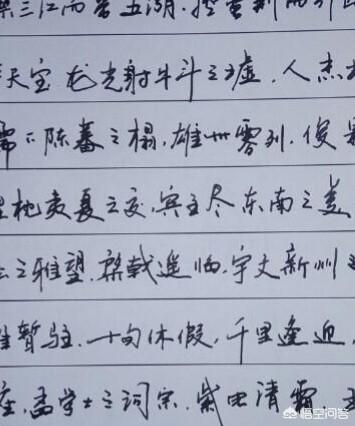 三江而带五湖.控蛮荆而引
天宝.龙光射牛斗之墟,人杰
孺下陈蕃之榻.雄州雾列.俊
枕夷夏之交,宾主尽东南之美
之雅望.棨戟遥临.宇文新州
暂驻.十旬休假,千里逢迎,
座.孟学士之词宗.紫电清霜.
悟空问答